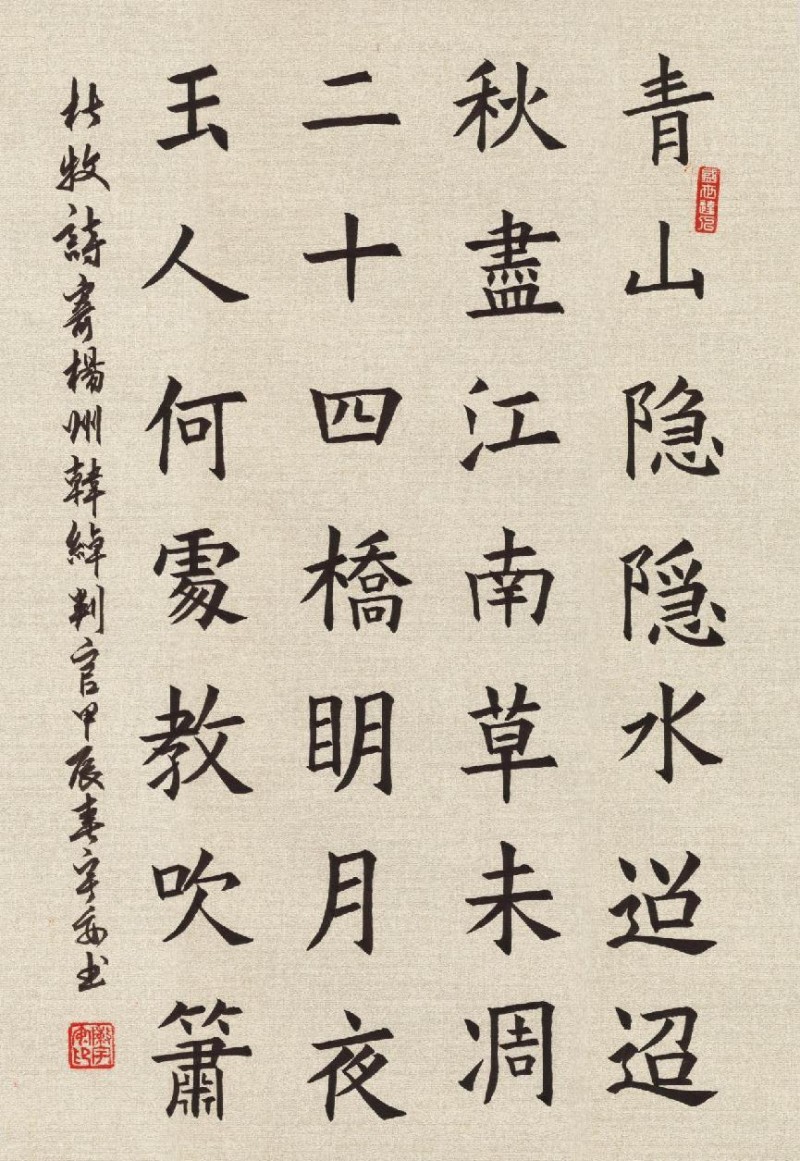 青山隐隐水迢迢
秋盡江南草未凋
二十四橋明月夜
玉人何處教吹簫
杜牧詩寄楊州韓綽判官甲辰春宇安書